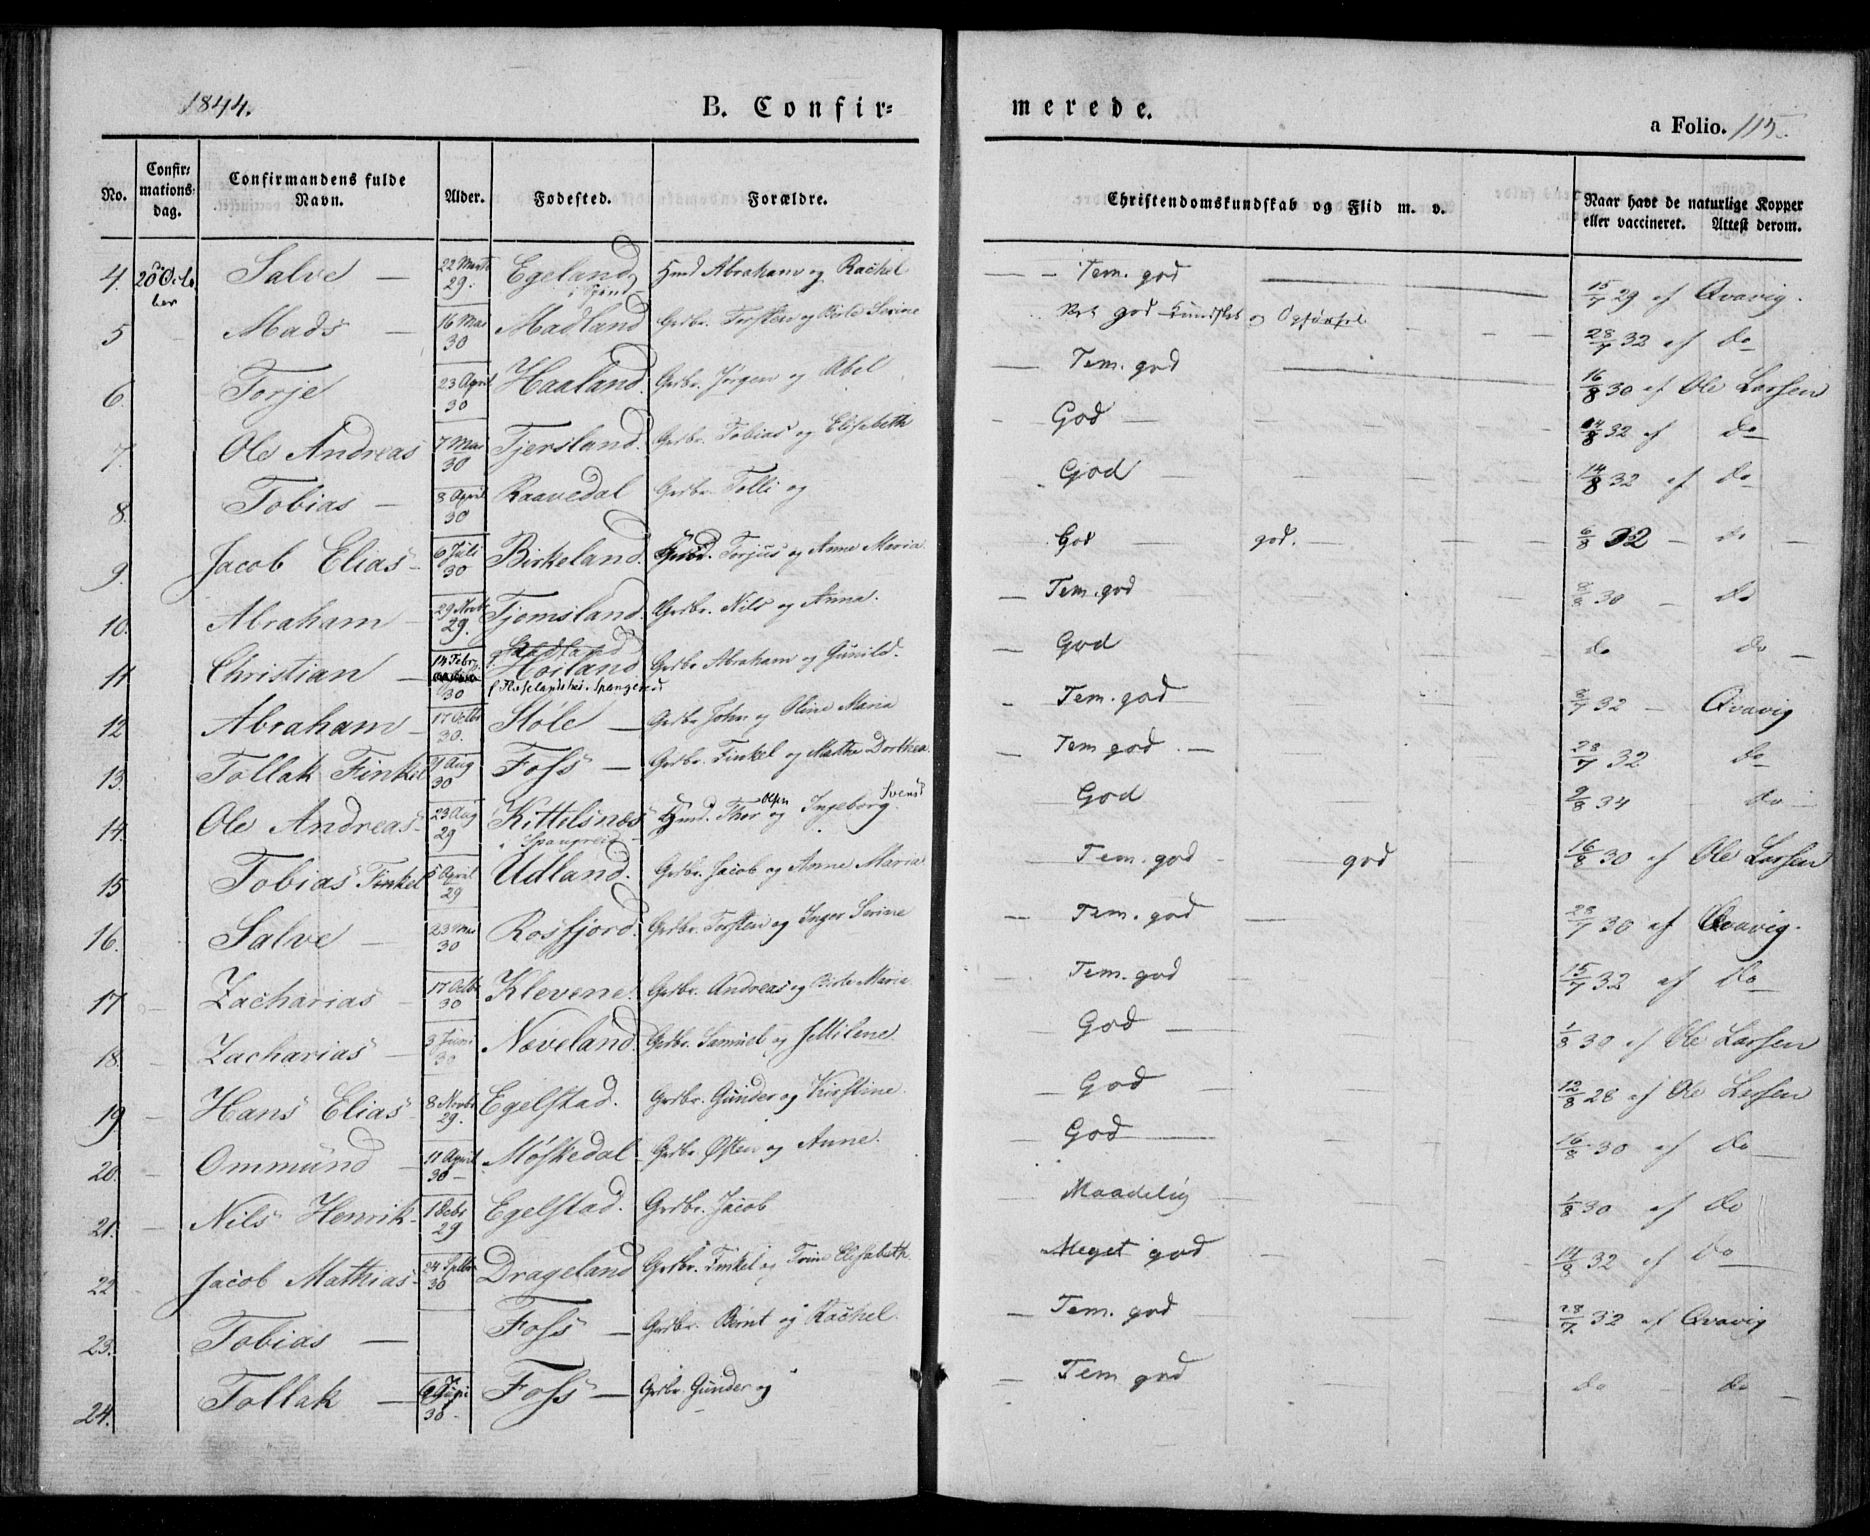 1844.
B. Confir=
merede.
a Folio. 115.
No.
Confir=
mations=
dag.
Confirmandens fulde
Navn.
Alder.
Fødested.
Forældre.
Christendomskundskab og Flid m. v.
Naar havt de naturlige Kopper
eller vaccineret. Attest derom.
4. 20de Octo Salve — 22 Marts Egeland Hmd Abraham og Rachel — Tem. god 15/7 29 af Qvavig.
ber 29. i
5 Mads — 16 Mai Madland Grdbr. Torsten og Berte Serine god Kundskab og 28/7 32 af do
30
6. Torje 23 April Haaland. Grdbr. Jørgen og Abel — Tem. god 16/8 30 af Ole Larsen
30
7. Ole Andreas 7 Mai Tjersland. Grdbr. Tobias og Elisabeth — God — 14/8 32 af do
30
8. Tobias — 8 April Raavedal Grdbr. Tolli og God — 14/8 32 af do
30
9. Jacob Elias 6 Juli Birkeland. Torjus og Anne Maria God — god. 6/8 32 — do
30
10. Abraham 29 Novbr Tjomsland. Grdbr. Nils og Anna. — Tem. god 30 — do
29.
11 Christian — 14 Febr. Høiland Grdbr Abraham og Gunild. — God do do —
30
12 Abraham — 17 Octbr Støle — Grdbr John og Oline Maria — Tem. god 32 — Qvavig
30.
13. Tollak Finkel Aug Foss — Grdbr. Finkel og Mathe Dorthea. — Tem god. — 28/7 32 do
30
14. Ole Andreas 23 Aug Kittelsnæs Hmd. Thor Olsen og Ingeborg Svensd God 9/8 34 do
29 i Spangreid
15 Tobias Finkel 5 April Udland. Grdbr. Jacob og Anne Maria Tem. god god 16/8 30 af Ole Larsen
29
16. Salve — 23 Mai Rosfjord. Grdbr. Torsten og Inger Serine — Tem. god — 28/7 30 af Qvavig.
30
17 Zacharias — 17 Octbr Klevene. Grdbr. Andreas og Berte Maria — Tem. god 15/7 32 af do
30
18. Zacharias — 3 Juni Næveland. Grdbr. Samuel og God — 1/8 30 af Ole Larsen
30
19 Hans Elias 8 Novbr Egelstad. Grdbr. Gunder og Kirstine. God — 12/8 28 af Ole Larsen
29.
20. Ommund — 11 April Møskedal Grdbr. Østen og Anne. — God 16/8 30 af do
30 —
21. Nils Henrik 1 Octbr Egelstad. Grdbr. Jacob — Maadelig 1/8 30 af do
29
22 Jacob Mathias 24 Sptbr Drageland Grdbr. Finkel og Trine Elisabeth Meget god 14/8 32 af do
30
23. Tobias — Foss — Grdbr. Bernt og Rachel. — Tem. god 28/7. 32 af Qvavig
24. Tollak — Foss — Grdbr. Gunder og — Tem god do — do
30.